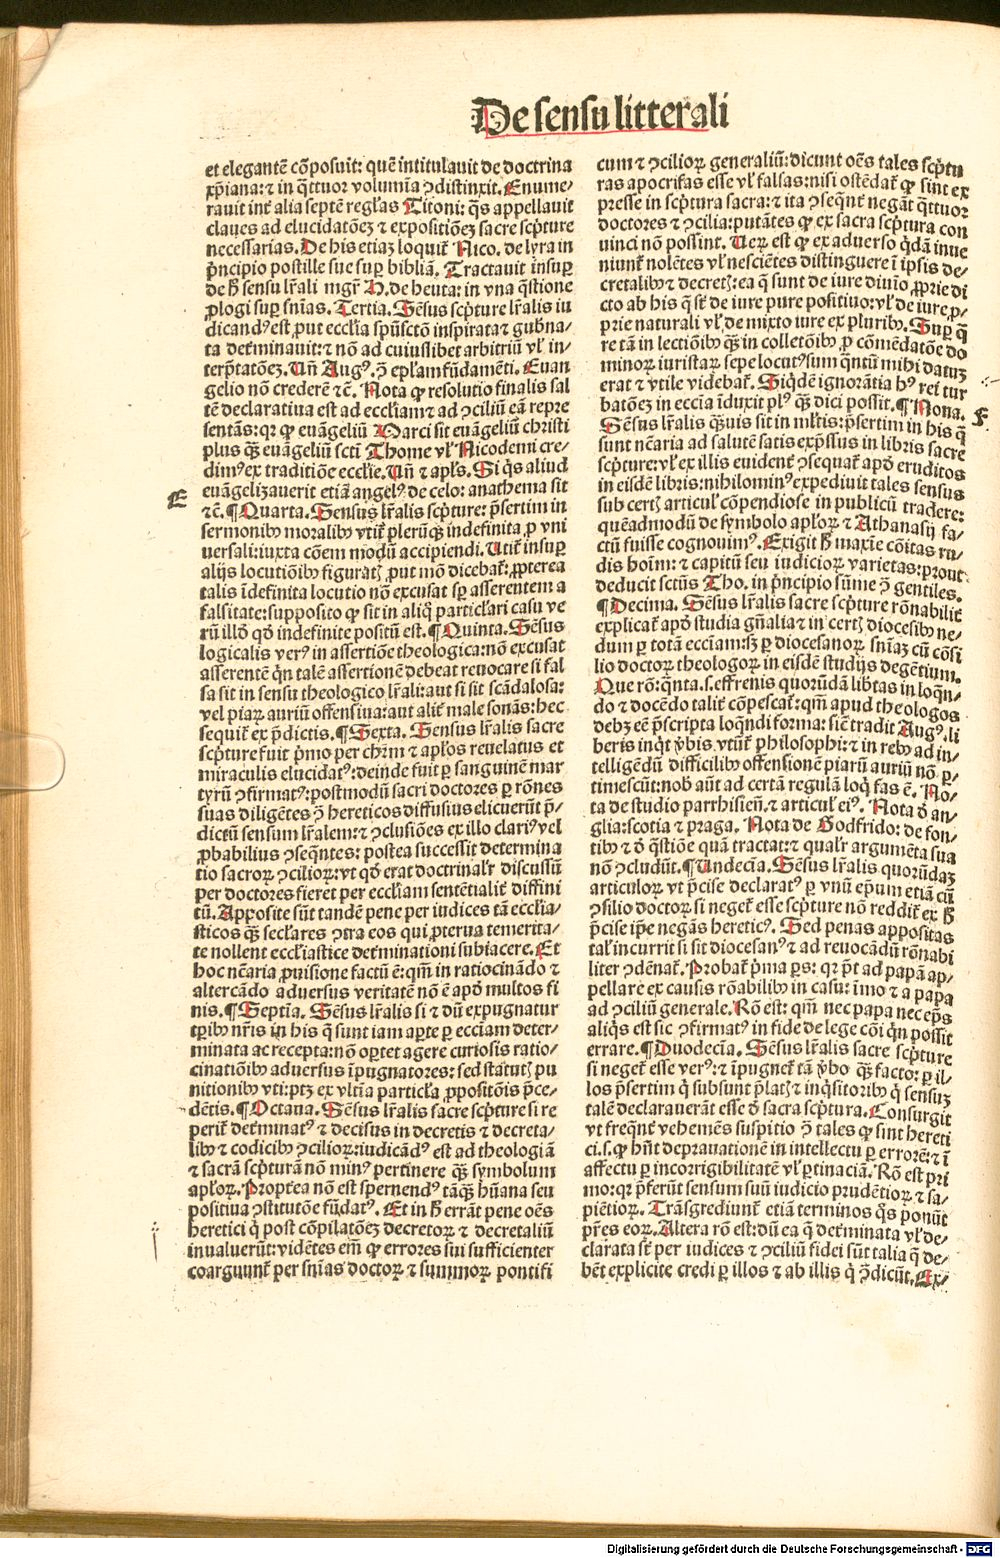 De sensu litterali
et elegantē cōposuit: quē intitulauit de doctrina
xp̄iana: ⁊ in q̄ttuor volumīa ꝯdistinxit. Enume-
rauit int̄ alia septē regl̓as Titoni: q̄s appellauit
claues ad elucidatōeȝ ⁊ expositiōeȝ sacre scp̄ture
necessarias. De his etiaȝ loquit̄ Nico. de lyra in
p̄ncipio postille sue suꝑ bibliā. Tractauit insuꝑ
de ħ sensu lr̄ali mgr̄ H. de heuta: in vna q̄stione
ꝓlogi suꝑ snīas. Tertia. Sēsus scp̄ture lr̄alis iu
dicandꝰ est, put eccl̓ia spūsctō inspirata ⁊ gubna-
ta det̄minauit: ⁊ nō ad cuiuslibet arbitriū vl̓ in-
terp̄tatōeȝ. Vn̄ Augꝰ. ꝯ̄ epl̓am fūdamēti. Euan
gelio nō crederē ⁊c̄. Nota ꝙ resolutio finalis sal
tē declaratiua est ad eccl̓iam ⁊ ad ꝯciliū eā repre
sentās: qr̄ ꝙ euāgeliū Marci sit euāgeliū christi
plus qȝ̄ euāgeliū sctī Thome vl̓ Nicodemi cre-
dimꝰ ex traditiōe eccl̓ie. Vn̄ ⁊ apl̓s. Si q̄s aliud
E
euāgelizauerit etiā angelꝰ de celo: anathema sit
⁊c̄. ¶ Quarta. Sensus lr̄alis scp̄ture: p̄sertim in
sermonibꝰ moralibꝰ vtit̄ plerūqȝ indefinita ꝓ vni
uersali: iuxta cōem modū accipiendi. Vtit̄ insuꝑ
alijs locutiōibꝰ figuratꝭ ꝓut mō dicebat̄: ꝓpterea
talis īdefinita locutio nō excusat sꝑ asserentem a
falsitate: supposito ꝙ sit in aliq̄ particl̓ari casu ve
rū illd̓ qd̓ indefinite positū est. ¶ Quinta. Sēsus
logicalis verꝰ in assertiōe theologica: nō excusat
asserentē qn̄ talē assertionē debeat reuocare si fal
sa sit in sensu theologico lr̄ali: aut si sit scādalosa:
vel piaꝝ auriū offensiua: aut alit̄ male sonās: hec
sequit̄ ex p̄dictis. ¶ Sexta. Sensus lr̄alis sacre
scp̄ture fuit p̄mo per chr̄m ⁊ apl̓os reuelatus et
miraculis elucidatꝰ: deinde fuit ꝑ sanguinē mar
tyrū ꝯfirmatꝰ: postmodū sacri doctores ꝑ rōnes
suas diligētes ꝯ̄ hereticos diffusius elicuerūt p̄-
dictū sensum lr̄alem: ⁊ ꝯclusiōes ex illo clariꝰ vel
ꝓbabilius ꝯseq̄ntes: postea successit determina
tio sacroꝝ ꝯcilioꝝ: vt qd̓ erat doctrinalr̄ discussū
per doctores fieret per eccl̓iam sentētialit̄ diffini
tū. Apposite sūt tandē pene per iudices tā eccl̓ia-
sticos qȝ̄ secl̓ares ꝯtra eos qui ꝓterua temerita-
te nollent eccl̓iastice det̄minationi subiacere. Et
hoc ncāria ꝓuisione factū ē: qm̄ in ratiocinādo ⁊
altercādo aduersus veritatē nō ē apd̓ multos fi
nis. ¶ Septīa. Sēsus lr̄alis si ⁊ dū expugnatur
tꝑibꝰ nr̄is in his q̄ sunt iam aꝑte ꝑ ecciam deter-
minata ac recepta: nō oꝑtet agere curiosis ratio-
cinatiōibꝰ aduersus īpugnatores: sed statutꝭ pu
nitionibꝰ vti: ptȝ ex vltīa particl̓a ꝓpositōis p̄ce-
dētis. ¶ Octaua. Sēsus lr̄alis sacre scp̄ture si re
perit̄ det̄minatꝰ ⁊ decisus in decretis ⁊ decreta-
libꝰ ⁊ codicibꝰ ꝯcilioꝝ: iudicādꝰ est ad theologiā
⁊ sacrā scp̄turā nō minꝰ pertinere qȝ̄ symbolum
apl̓oꝝ. Propt̄ea nō est spernendꝰ tāqȝ hūana seu
positiua ꝯstitutōe fūdatꝰ. Et in ħ errāt pene oēs
heretici q̄ post cōpilatōeȝ decretoꝝ ⁊ decretaliū
inualuerūt: vidētes em̄ ꝙ errores sui sufficienter
coarguunt̄ per snīas doctoꝝ ⁊ summoꝝ pontifi
cum ⁊ ꝯcilioꝝ generaliū: dicunt oēs tales scp̄tu
ras apocrifas esse vl̓ falsas: nisi ostēdat̄ ꝙ sint ex
presse in scp̄tura sacra: ⁊ ita ꝯseqn̄t̄ negāt q̄ttuor
doctores ⁊ ꝯcilia: putātes ꝙ ex sacra scp̄tura con
uinci nō possint. Ueꝝ est ꝙ ex aduerso q̄dā inue
niunt̄ nolētes vl̓ nesciētes distinguere ī ipsis de-
cretalibꝰ ⁊ decretꝭ: ea q̄ sunt de iure diuīo ꝓprie di
cto ab his q̄ st̄ de iure pure positiuo: vl̓ de iure ꝓ-
prie naturali vl̓ de mixto iure ex pluribꝰ. Suꝑ q̄
re tā in lectiōibꝰ qȝ̄ in collatōibꝰ ꝓ cōmēdatōe do
minoꝝ iuristaꝝ sepe locutꝰ sum q̄ntū mihi datuȝ
erat ⁊ vtile videbat̄. Siqd̄ē ignorātia hꝰ rei tur
batōeȝ in eccīa īduxit plꝰ qȝ̄ dici possit. ¶ Nona.
F
Sēsus lr̄alis qȝ̄uis sit in ml̓tis: p̄sertim in his q̄
sunt ncāria ad salutē satis exp̄ssus in libris sacre
scp̄ture: vl̓ ex illis euident̄ ꝯsequat̄ apd̓ eruditos
in eisdē libris: nihilominꝰ expediuit tales sensus
sub certꝭ articul̓ cōpendiose in publicū tradere:
quēadmodū de symbolo apl̓oꝝ ⁊ Athanasij fa-
ctū fuisse cognouimꝰ. Exigit ħ maxīe cōitas ru-
dis hoīm: ⁊ capitū seu iudicioꝝ varietas: prout
deducit sctūs Tho. in p̄ncipio sūme ꝯ̄ gentiles.
¶ Decima. Sēsus lr̄alis sacre scp̄ture rōnabilit̄
explicat̄ apd̓ studia gn̄alia ⁊ in certꝭ diocesibꝰ ne-
dum ꝑ totā ecciam: sȝ ꝑ diocesanoꝝ snīaȝ cū cōsi
lio doctoꝝ theologoꝝ in eisdē studijs degētium.
Que rō: q̄nta. s. effrenis quorūdā lib̄tas in loqn̄-
do ⁊ docēdo talit̄ cōpescat̄: qm̄ apud theologos
debȝ eē p̄scripta loqn̄di forma: sic̄ tradit Augꝰ. li
beris inqt̄ v̄bis vtūt̄ philosophi: ⁊ in rebꝰ ad in-
telligēdū difficilibꝰ offensionē piarū auriū nō ꝑ-
timescūt: nob̓ aūt ad certā regulā loq̄ fas ē. No-
ta de studio parrhisien̄. ⁊ articul̓ eiꝰ. Nota d̓ an-
glia: scotia ⁊ praga. Nota de Godfrido: de fon-
tibꝰ ⁊ d̓ q̄stiōe quā tractat: ⁊ qualr̄ argumēta sua
nō ꝯcludūt. ¶ Undecīa. Sēsus lr̄alis quorūdaȝ
articuloꝝ vt p̄cise declaratꝰ ꝑ vnū ep̄um etiā cū
ꝯsilio doctoꝝ si neget̄ esse scp̄ture nō reddit̄ ex ħ
p̄cise ip̄e negās hereticꝰ. Sed penas appositas
tal̓ incurrit si sit diocesanꝰ ⁊ ad reuocādū rōnabi
liter ꝯdēnat̄. Probat̄ p̄ma ꝑs: qr̄ pt̄ ad papā ap-
pellare ex causis rōabilibꝰ in casu: īmo ⁊ a papa
ad ꝯciliū generale. Rō est: qm̄ nec papa nec ep̄s
aliq̄s est sic ꝯfirmatꝰ in fide de lege cōi qn̄ possit
errare. ¶ Duodecīa. Sēsus lr̄alis sacre scp̄ture
si neget̄ esse verꝰ: ⁊ īpugnet̄ tā v̄bo qȝ̄ facto: ꝑ il-
los p̄sertim q̄ subsunt p̄latꝭ ⁊ inqsitoribꝰ q̄ sensuȝ
talē declarauerāt esse d̓ sacra scp̄tura. Consurgit
vt freqn̄t̄ vehemēs suspitio ꝯ̄ tales ꝙ sint hereti
ci. s. ꝙ hn̄t deprauationē in intellectu ꝑ errorē: ⁊ ī
affectu ꝑ incorrigibilitatē vl̓ ꝑtinaciā. Rō est pri
mo: qr̄ p̄ferūt sensum suū iudicio prudētioꝝ ⁊ sa-
piētioꝝ. Trāsgrediunt̄ etiā terminos q̄s ponūt
pr̄es eoꝝ. Altera rō est: dū ea q̄ det̄minata vl̓ de-
clarata st̄ per iudices ⁊ ꝯciliū fidei sūt talia q̄ de-
bēt explicite credi ꝑ illos ⁊ ab illis q̄ ꝯ̄dicūt. Ex-
Digitalisierung gefördert durch die Deutsche Forschungsgemeinschaft - DFG